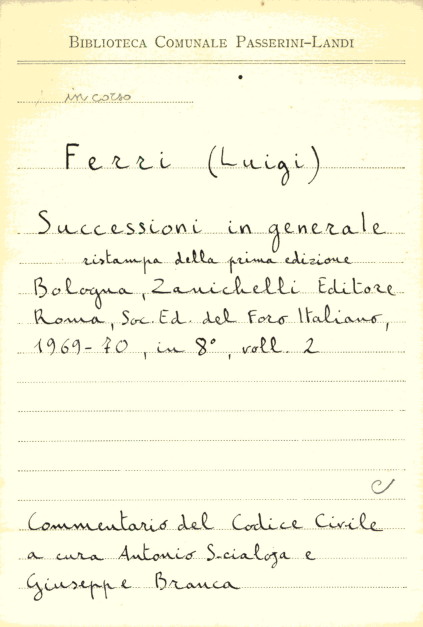 BIBLIOTECA COMUNALE PASSERINI-LANDI
in corso
Ferri (Luigi)
Successioni in generale
ristampa della prima edizione
Bologna, Zanichelli Editore
Roma, Soc. Ed. del Foro Italiano,
1969-70, in 8°, voll. 2
Commentario del Codice Civile
a cura Antonio Scialoja e
Giuseppe Branca